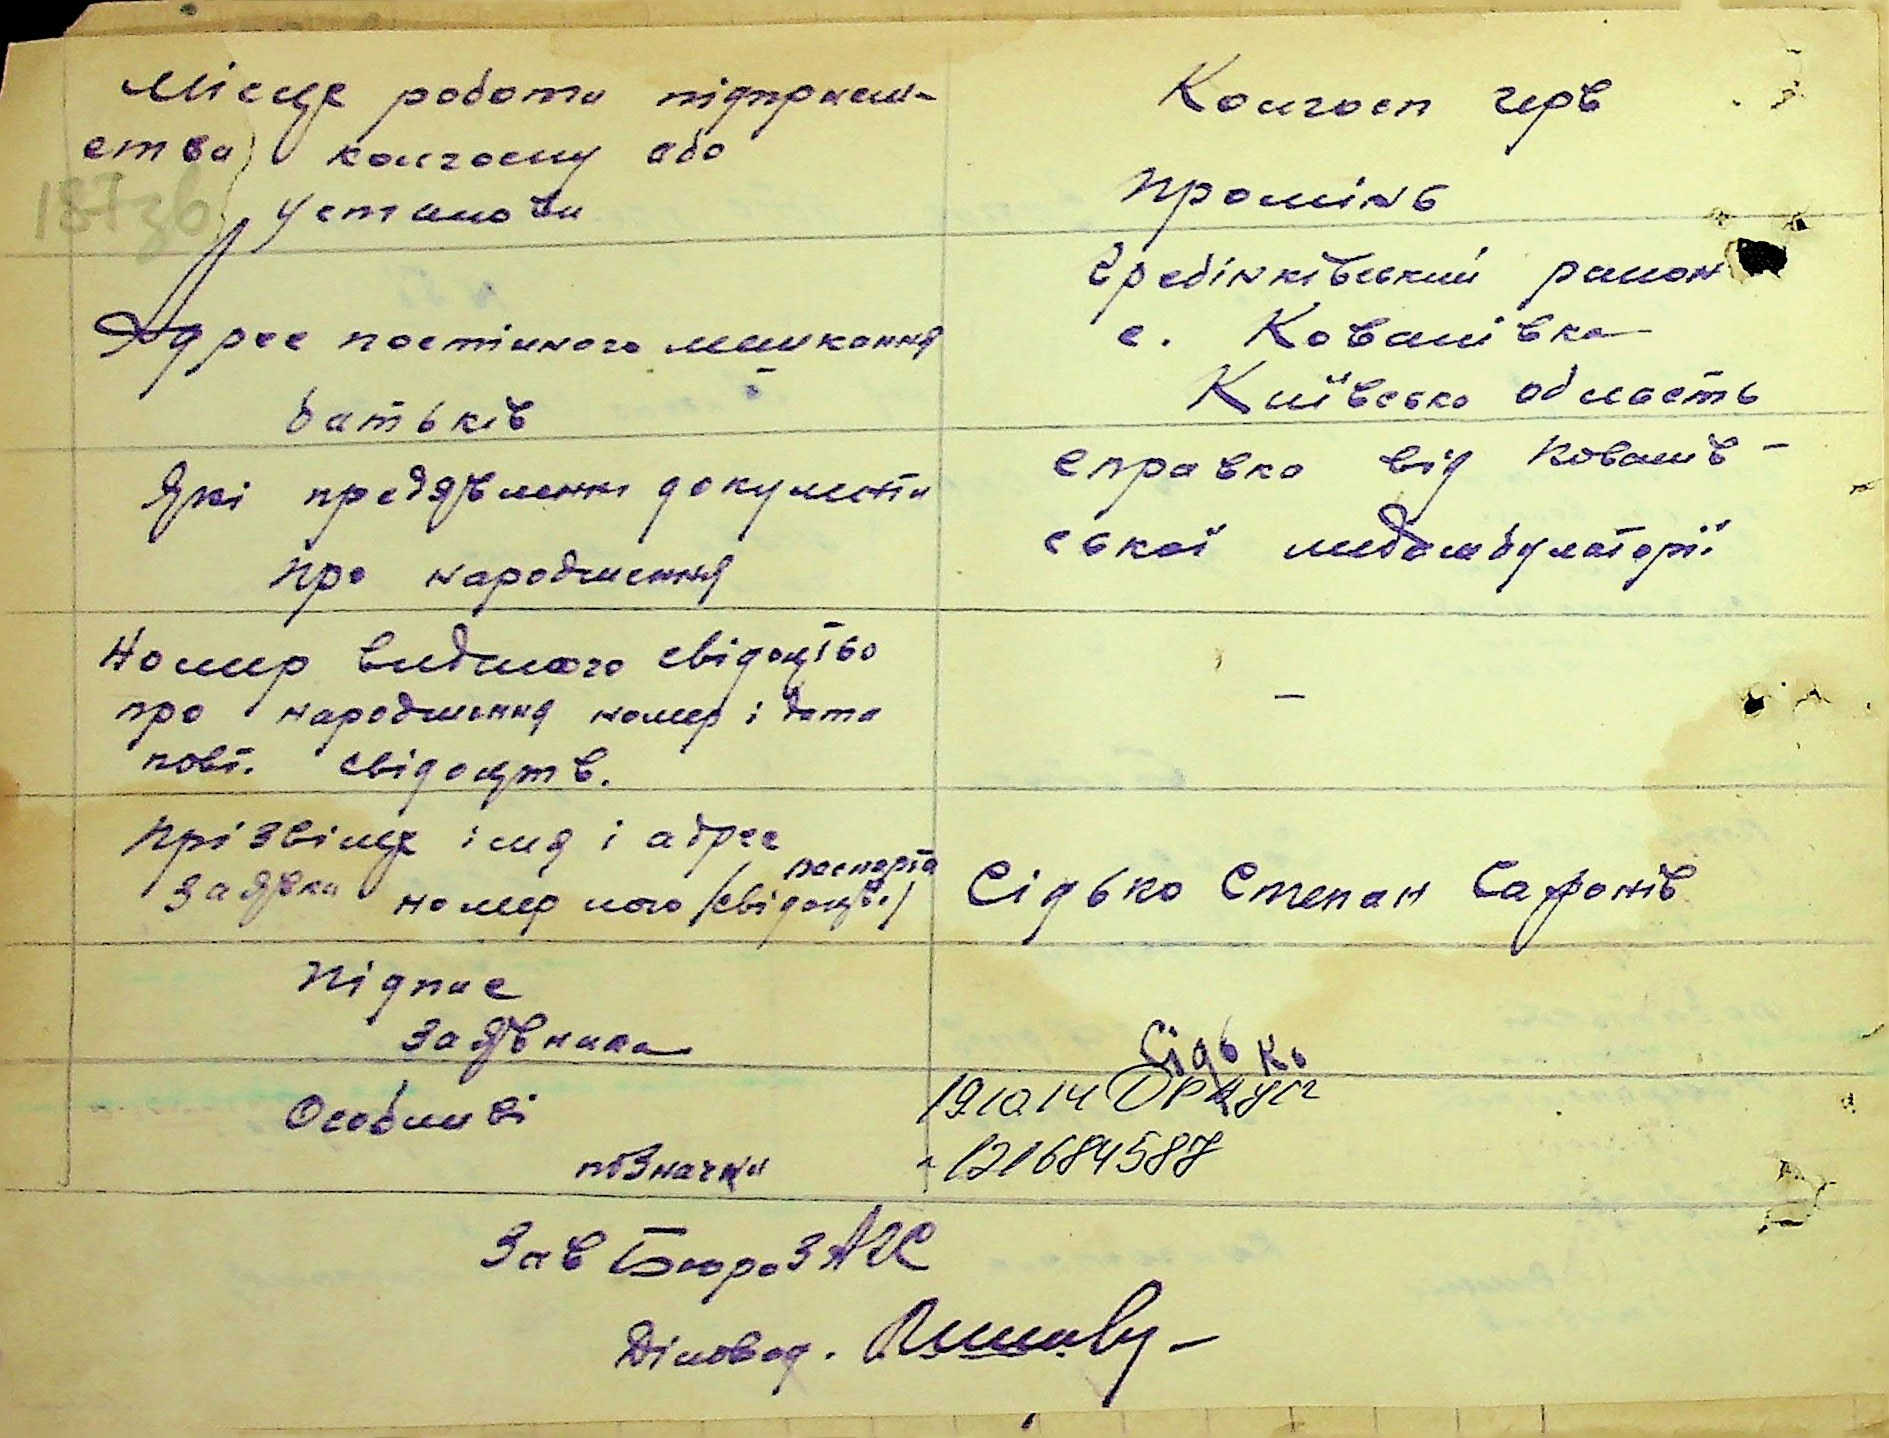 Місце роботи підприєм-
ства, колгоспу або
установи
Колгосп черв
промінь
187зв
Адрес постійного мешкання
батьків
Гребінківський район
с. Ковалівка
Київська область
Які предявленні документи
про народження
справка від Ковалів-
ської медамбулаторії
Номер виданого свідоцтва
про народження номер і дата
повт. свідоцтв.
–
Прізвище імя і адрес
заявки номер його паспорта /свідоцт./
Сідько Степан Сафонів
Підпис
заявника
Сідько
Особливі
позначки
191014
121684587
Зав Бюро ЗАГС
Діловод.